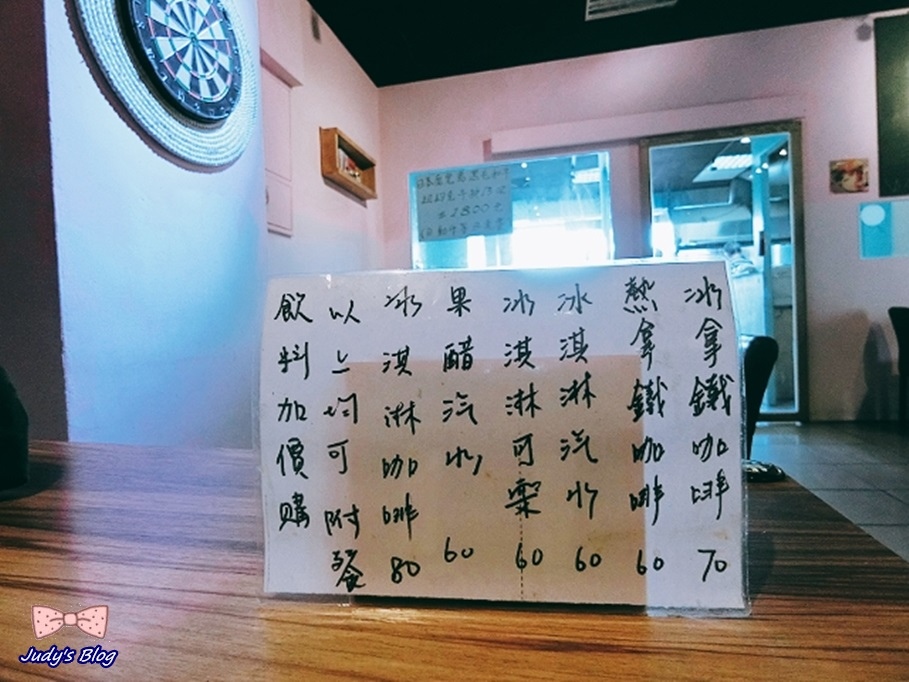 冰拿鐵咖啡 70
熱拿鐵咖啡 60
冰淇淋汽水 60
冰淇淋可樂 60
果醋汽水 60
冰淇淋咖啡 80
以上均可附餐
飲料加價購
2800元
Judy's Blog